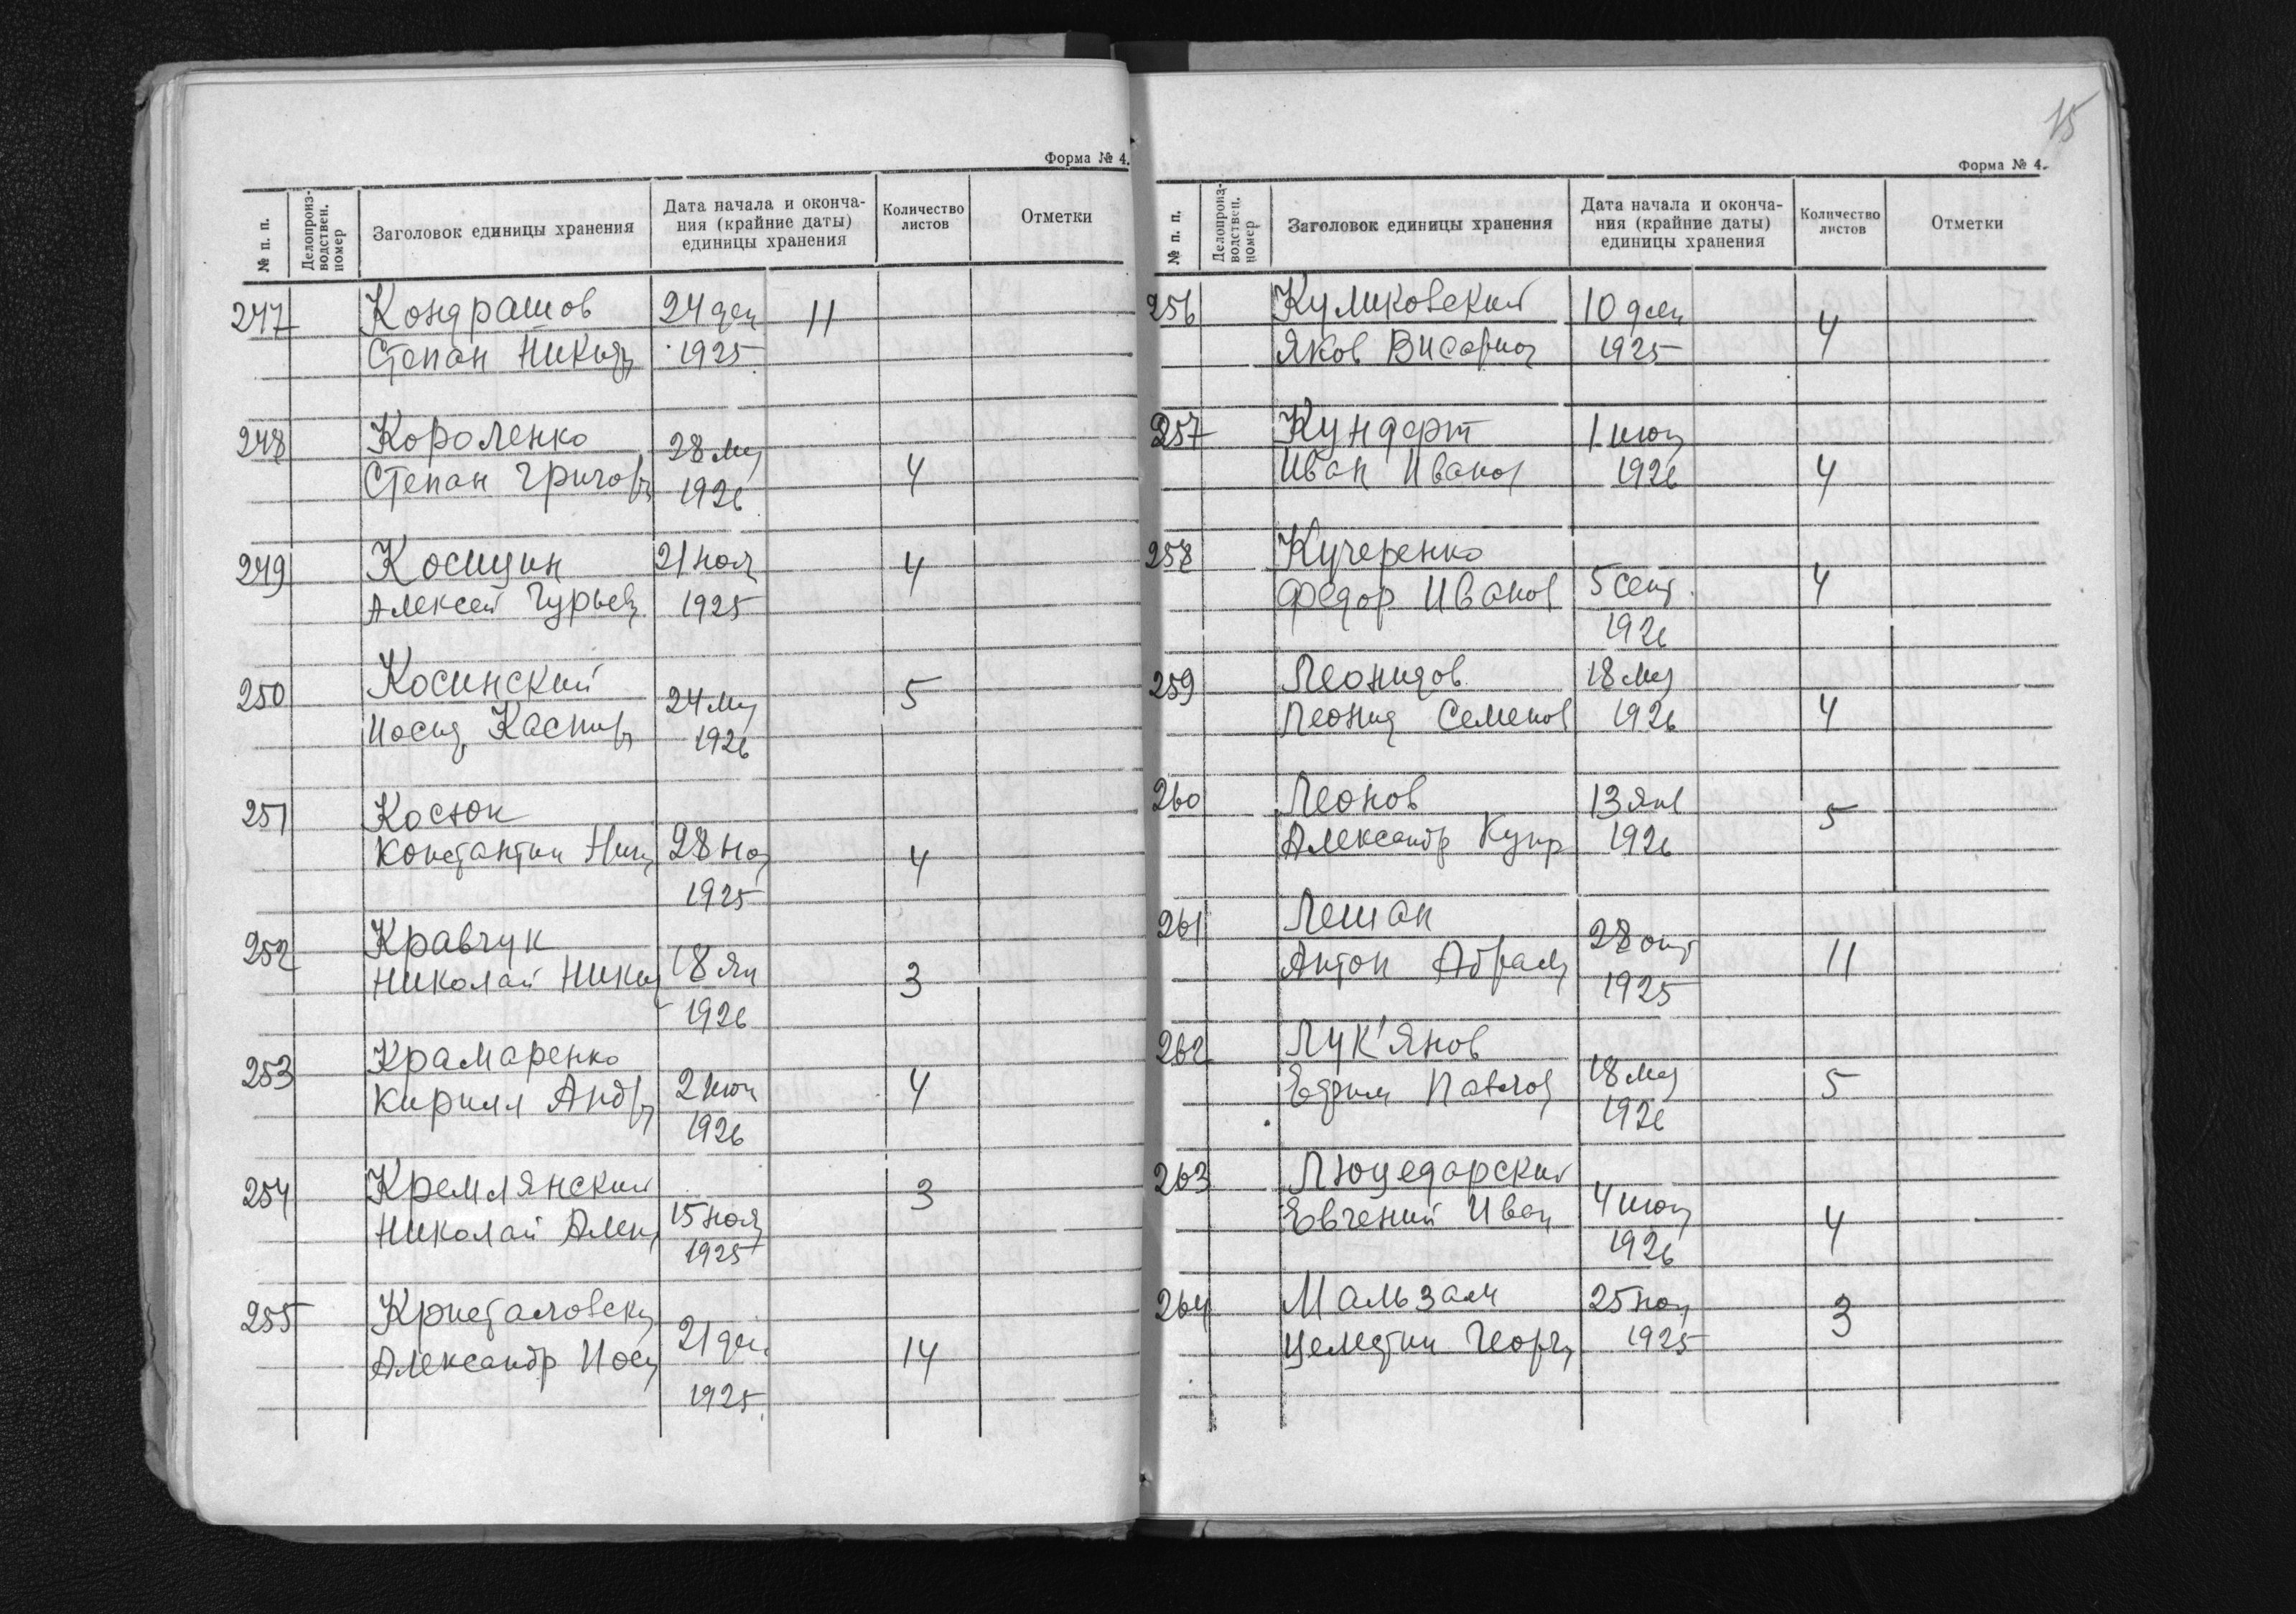 Форма № 4.
№ п. п.
Делопроиз-
водствен.
номер
Заголовок единицы хранения
Дата начала и оконча-
ния (крайние даты)
единицы хранения
Количество
листов
Отметки
247 Кондрашов 24 дек 11
Степан 1925
248 Короленко 28
Степан Григор 1926 4
249 Косицин 21 ноя 4
Алексей Гурьев 1925
250 Косинский 24 5
Каспир 1926
251 Косюк
Константин 28 ноя 4
1925
252 Кравчук
Николай 18 ян 3
1926
253 Крамаренко
Кирилл Андр 2 июн 4
1926
254 Кремлянский 3
Николай 15 ноя
1925
255
Александр 21 дек 14
1925
15
Форма № 4.
№ п. п.
Делопроиз-
водствен.
номер
Заголовок единицы хранения
Дата начала и оконча-
ния (крайние даты)
единицы хранения
Количество
листов
Отметки
256 Куликовский 10 дек 4
Яков 1925
257 Кундерт 1
Иван Иванов 1926 4
258 Кучеренко
Федор Иванов 5 сент 4
1926
259 Леонидов 18
Леонид Семенов 1926 4
260 Леонов 13 янв 5
Александр Купр 1926
261 Лешан 28 окт
Антон Абрам 11
1925
262 Лук'янов
Ефим Павлов 18 5
1926
263
Евгений Иван 4 4
1926
264 Мальзам 25 ноя 3
Георг 1925